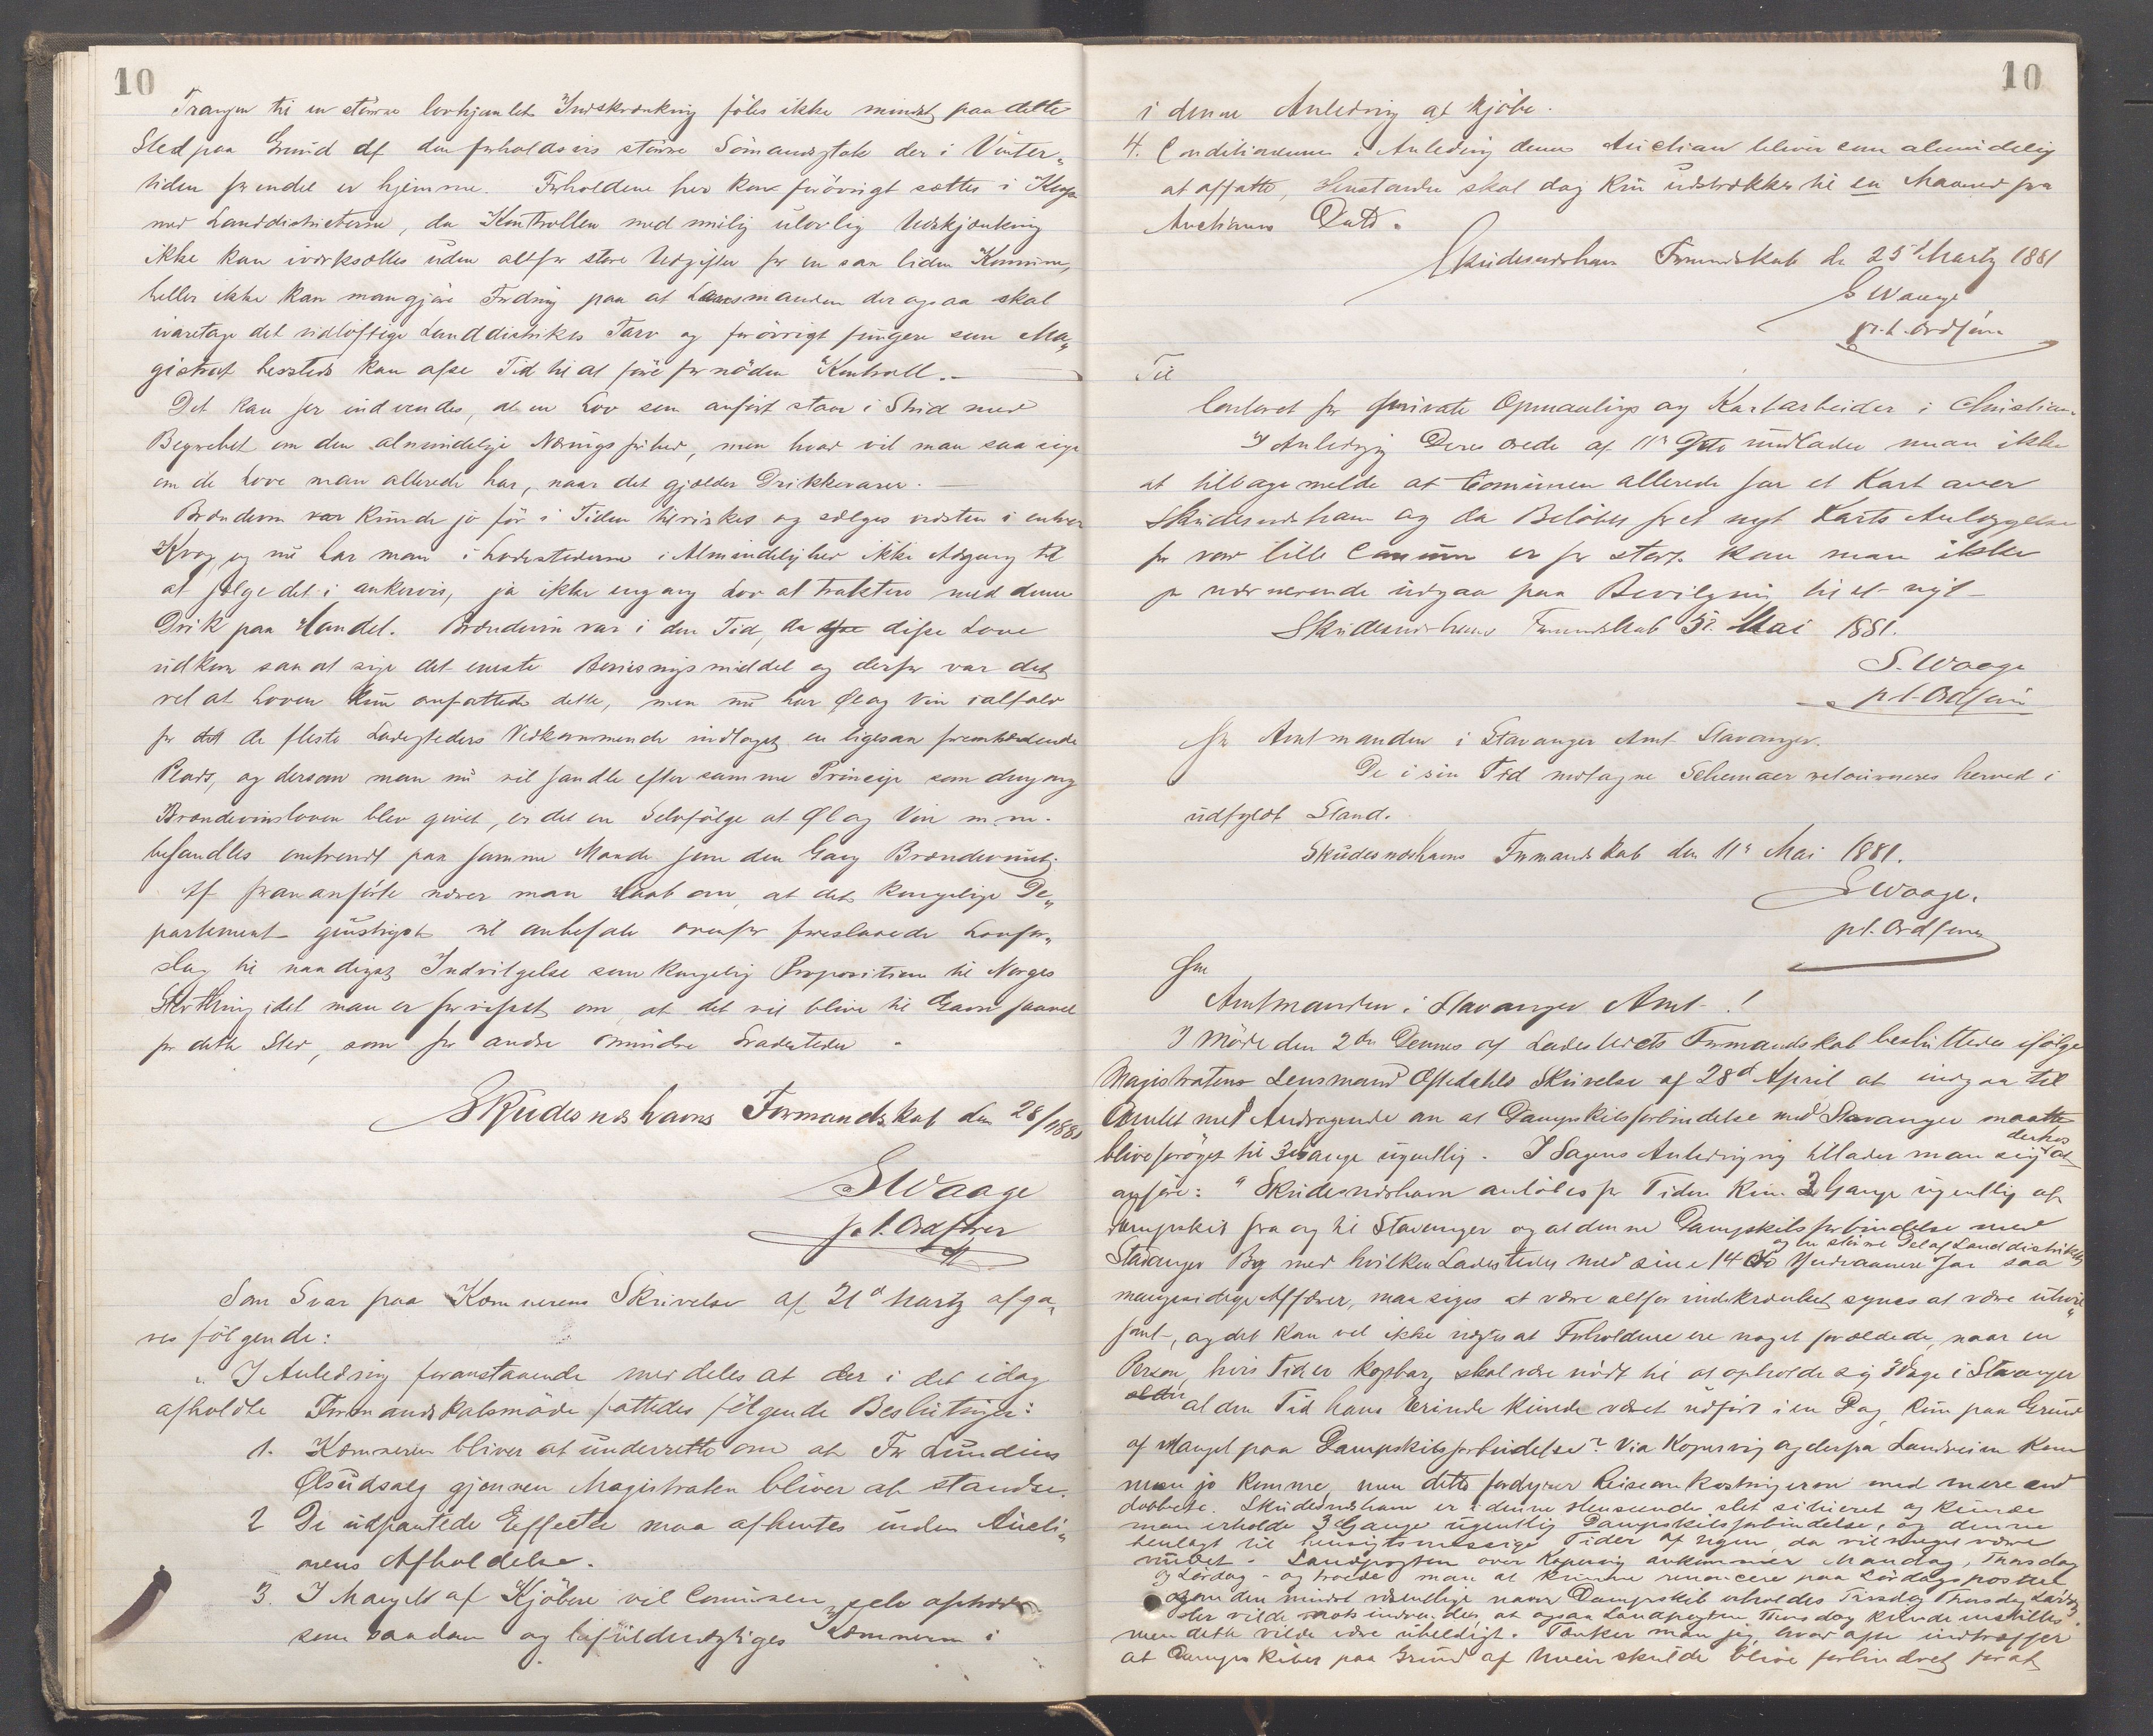 10
Trangen til en större lovhjemlet Indskrænkning föles ikke mindst paa dette
Sted paa Grund af den forholdsvis större Sömandsstok der i Vinter„
tiden for endel er hjemme. Forholdene her kan forövrigt sættes i
med Landdistricterne, da Kontrollen med mulig ulovlig Udskjænkning
ikke kan iværksættes uden altfor store Udgifter for en saa liden Kommune,
heller ikke kan man gjöre Fordring paa at Lensmanden der ogsaa skal
ivaretage det vidtlöftige Landdistrikts Tarv og forövrigt fungere som Ma„
gistrat hersteds kan afse Tid til at före fornöden Kontroll.—
Det kan her indvendes, at en Lov som anfört staar i Strid med
Begrebet om den almindelige Næringsfrihed, men hvad vil man saa sige
om de Love man allerede har, naar det gjælder Drikkevarer.—
Brændevin kunde jo för i Tiden tilvirkes og sælges næsten i enhver
Krog, og nu har man i Ladestederne i Almindelighed ikke Adgang til
at sælge det i ankervis, ja ikke engang Lov at traktere med denne
Drik paa Handel. Brændevin var i den Tid, da disse Love
udkom saa at sige det eneste Berusningsmiddel og derfor var det
vel at Loven kun omfattede dette, men nu har Öl og Vin ialfald
for de fleste Ladesteders Vedkommende indtaget en ligesaa fremtrædende
Plads, og dersom man nu vil handle efter samme Princip som dengang
Brændevinsloven blev givet, er det en Selvfölge at Öl og Vin m.m.
behandles omtrendt paa samme Maade som den Gang Brændevinet.
Af foran anförte nærer man Haab om, at det kongelige De„
partement gunstigst vil anbefale ovenfor foreslaaede Lovfor„
slag til naadigst Indvilgelse som kongelig Proposition til Norges
Storthing idet man er forvisset om, at det vil blive til Gavn saavel
for dette Sted, som for andre mindre Ladesteder.
Skudesneshavns Formandskab den 28/ 1881
S Waage
p.t. Ordförer
Som Svar paa Kæmnerens Skrivelse af 21d Martz afga„
ves fölgende:
„I Anledning foranstaaende meddeles at der i det idag
afholdte Formandskabsmöde fattedes fölgende Beslutninger:
1. Kæmneren bliver at underrette om at Fr Lundins
Ölsudsalg gjennem Magistraten bliver at standse.
2 De udpantede Effecter maa afhentes inden Aucti„
onens Afholdelse.
3. I Mangel af Kjöbere vil Comunen selv optræde
som saadan og befuldmægtiges Kæmneren i
10
i denne Anledning at kjöbe.
4. Conditionerne i Anledning denne Auction bliver som almindelig
at affatte, Henstanden skal dog kun udstrækkes til en Maaned fra
Auctionens Dato.
Skudesneshavn Formandskab de 25d Martz 1881
S Waage
p.t. Ordförer
Til
Contoret for private Opmaalings og Kartarbeider i Christiania
I Anledning Deres ærede af 11te undlader man ikke
at tilbagemelde at Comunen allerede har et Kart over
Skudesneshavn og da Belöbet for et nyt Karts Anlæggelse
for vor lille Comune er for stort kan man ikke
for nærværende indgaa paa Bevilgning til et nyt—
Skudesneshavns Formandskab 5. Mai 1881.
S. Waage
p.t. Ordförer
Hr Amtmanden i Stavanger Amt Stavanger.
De i sin Tid modtagne Schemaer retourneres herved i
udfyldt Stand.
Skudesneshavns Formandskab den 11te Mai 1881.
S Waage.
p.t. Ordförer
Hr
Amtmanden i Stavanger Amt!
I Möde den 2den Dennes af Ladestedets Formandskab besluttedes ifölge
Magistratens Lensmand Oftedahls Skrivelse af 28d April at indgaa til
Amtet med Andragende om at Dampskibsforbindelse med Stavanger maatte
blive foröget til 3 Gange ugentlig. I Sagens Anledning tillader man sig derhos at
anföre: "Skudesneshavn anlöbes for Tiden kun 2 Gange ugentlig af
Dampskib fra og til Stavanger og at denne Dampskibsforbindelse med
Stavanger By med hvilken Ladestedet med sine 1400 Indvaanere og en större Del af Landdistriktet har saa
mangesidige Affærer, maa siges at være altfor indskrænket synes at være utvivl„
somt, og det kan vel ikke nægtes at Forholdene ere noget forældede, naar en
Person, hvis Tid er kostbar, skal være nödt til at opholde sig Dage i Stavanger
al den Tid hans Erinde kunde været udfört i en Dag, kun paa Grund
af Mangel paa Dampskibsforbindelse? Via Kopervig og derfra Landveien kan
man jo komme, men dette fordyrer Reiseomkostningerne med mere end
dobbelte. Skudesneshavn er i denne Henseende slet situeret og kunde
man erholde 3 Gange ugentlig Dampskibsforbindelse, og denne
henlagt til hensigtsmæssige Tider af Ugen, da vil meget være
vundet. Landposten over Kopervig ankommer Mandag, Thorsdag
og Lördag – og troede man at kunne renoncere paa Lördagsposten
som den mindst væsentlige naar Dampskib erholdes Tirsdag Thorsdag Lördag.
Der vilde indvendes, at ogsaa Landposten Thorsdag kunde indstilles
men dette vilde være uheldigt. Tænker man sig, hvad ofte indtræffer
at Dampskibet paa Grund af Uveir skulde blive forhindret for at